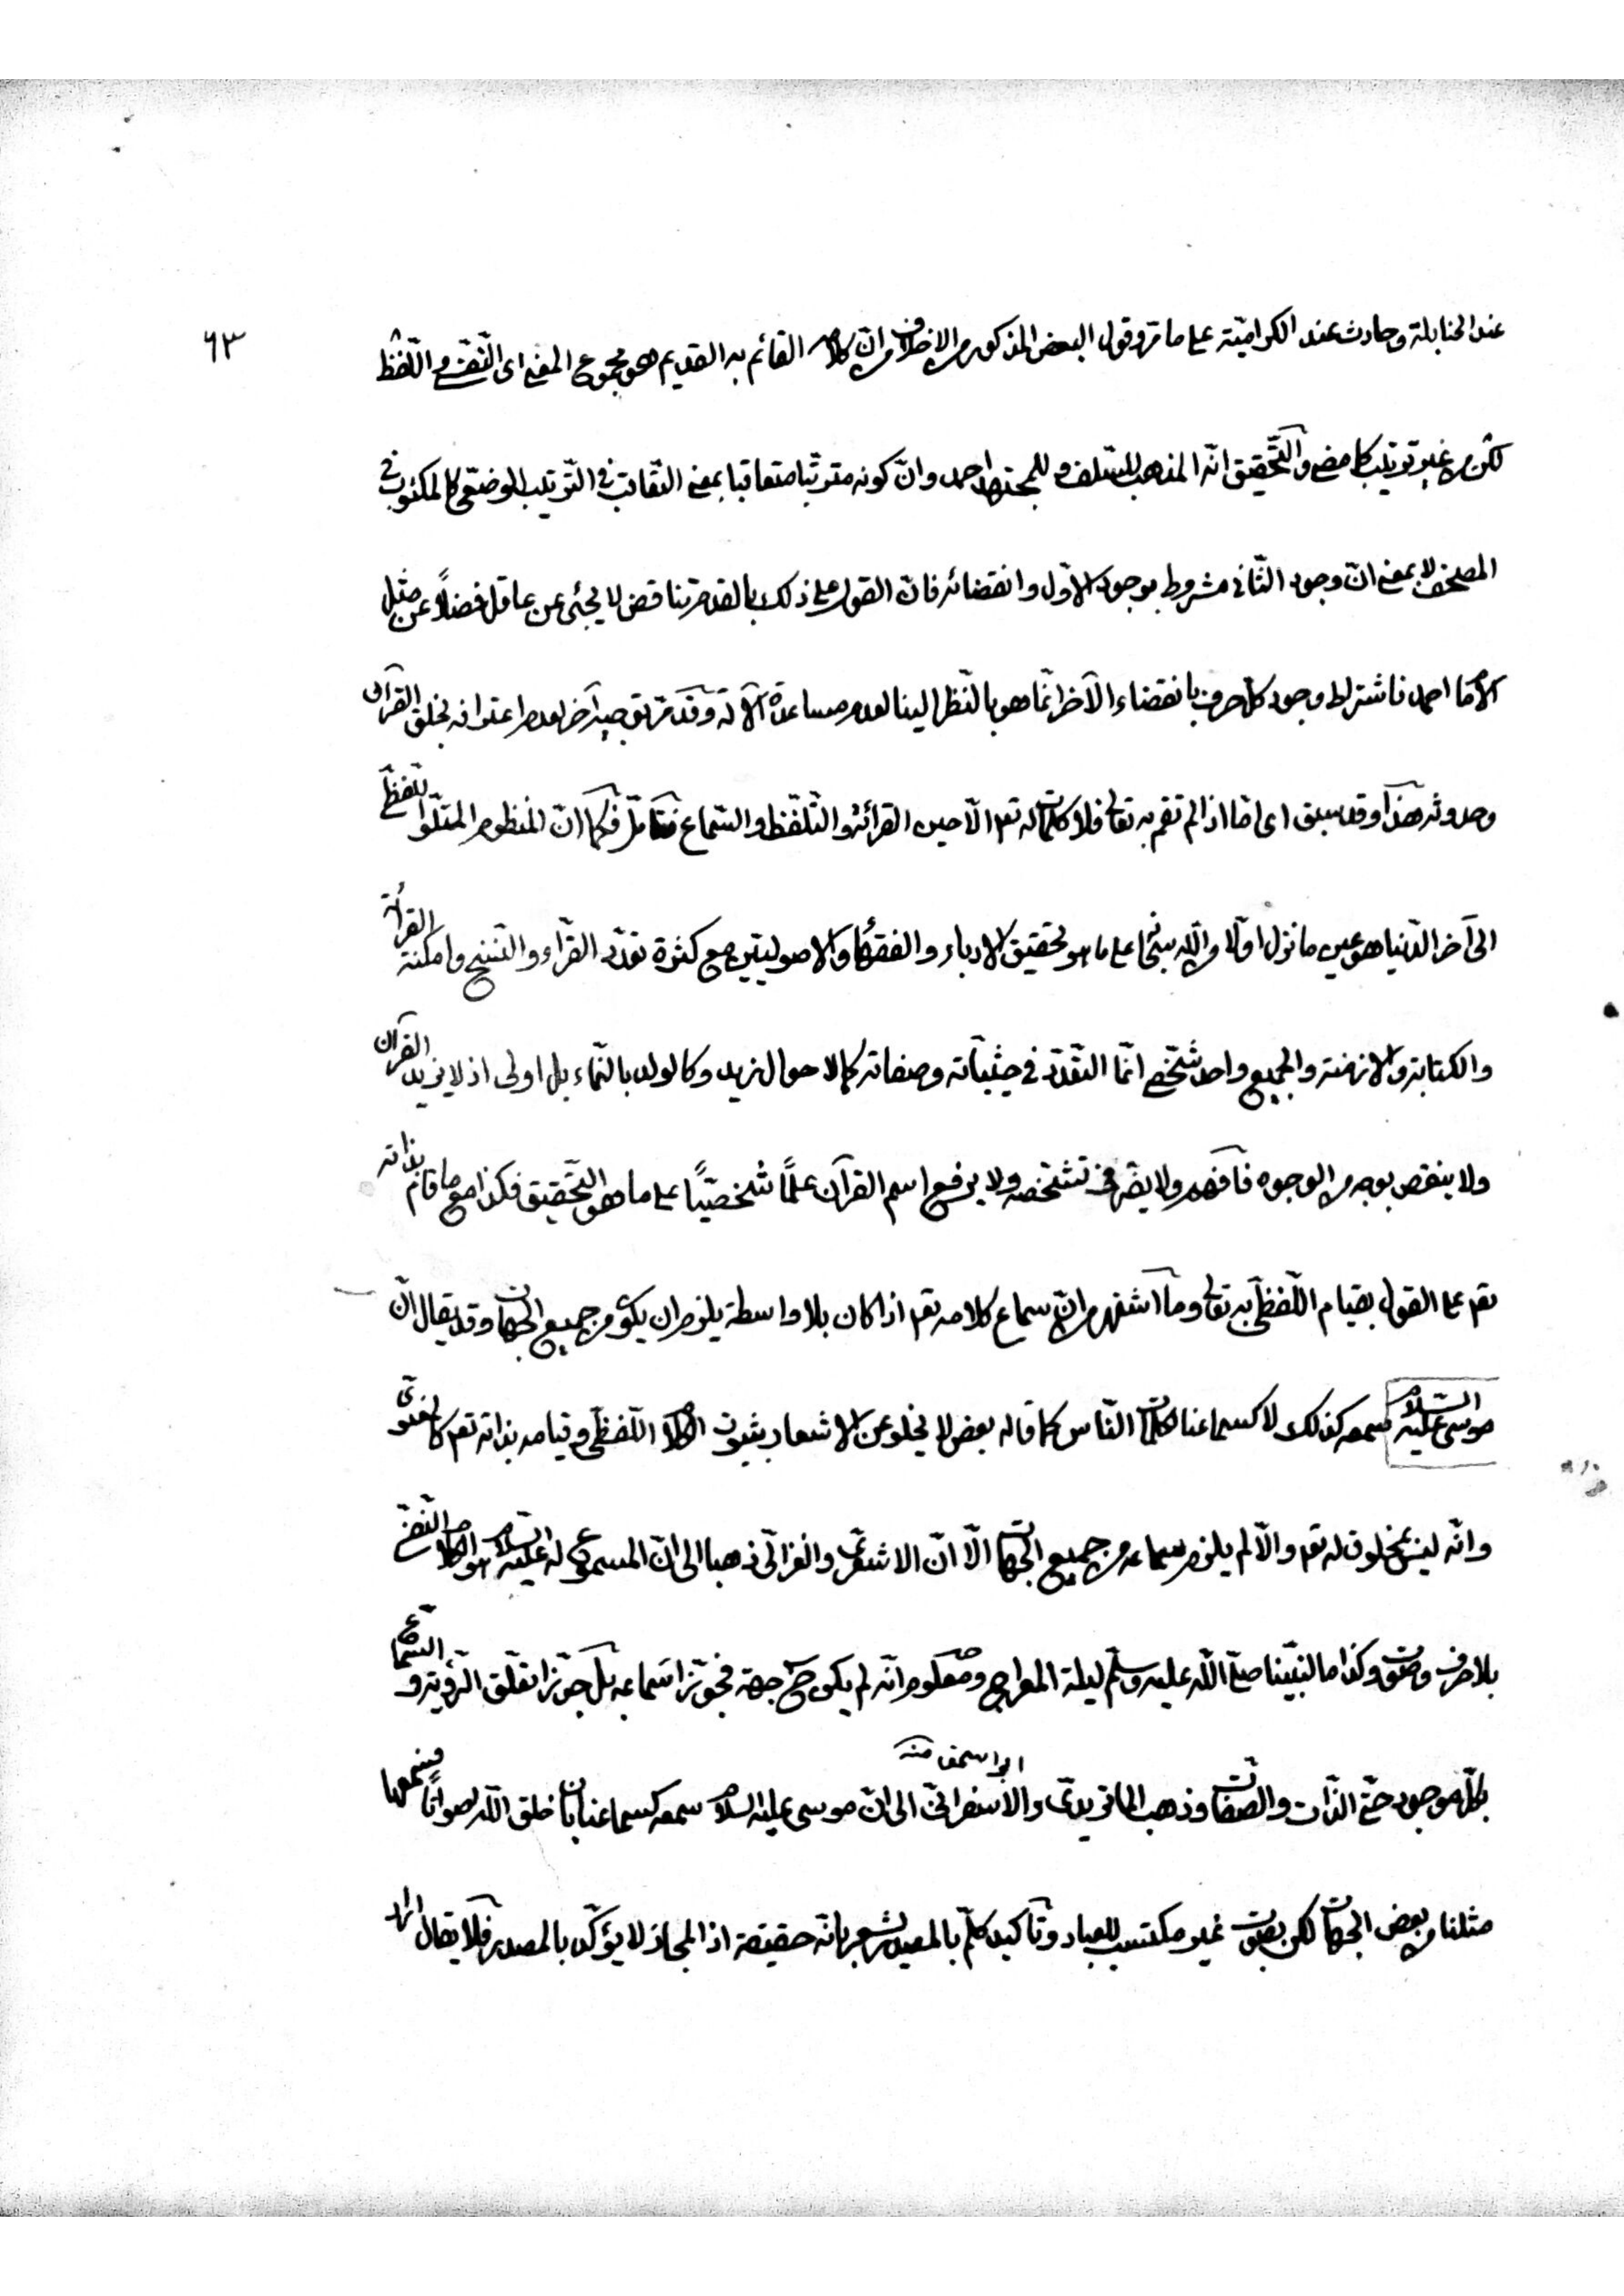 ٦٣
عند الحنابلة وحادث عند الكرامیّة علی ما مرّ وقول البعض المذکور من الاخلاف من انّ کلامه القائم به القدیم هو مجموع المعنی ای النّفسی واللّفظی
لکن من غیر ترتیب کما مضی والتّحقیق انّه المذهب للسّلف وللمجتهد احمد وانّ کونه مترتّبا متعاقبا بمعنی التّعاقب فی التّرتیب الوضعی کالمکتوب فی
المصحف لا بمعنی انّ وجود الثّانی مشروط بوجود الاوّل وانقضائه فانّ القول علی ذلک بالقدم تناقض لا یجئی عن عاقل فضلاً عن مثل
الامام احمد فاشتراط وجود کلّ حرف بانقضاء الآخر انّما هو بالنّظر الینا لعدم مساعدة الآلة وقد مرّ توجیه آخر لعدم اعترافه بخلق القرآن
وحدوثه هذا وقد سبق ای اذا لم تقم به تعالی فلا کلمات له تعم الّا حین القرائة والتّلفّظ والسّماع فتأمّل فکما انّ المنظوم المتلوّ اللّفظی
الی آخر الدّنیا هو عین ما نزل اوّلا من اللّه سبحانه علی ما هو تحقیق الادباء والفقهاء والاصولیّین مع کثرة تعدّد القرّاء والنّسخ وامکنة القرائة
والکتابة والازمنة والجمیع واحد شخصی انّما التّعدّد فی حیثیّاته وصفاته کالاحوال لزید وکالولد بالنّماء بل اولی اذ لا یزید القرآن
ولا ینقص بوجه من الوجوه فافهم ولا یضرّ فی تشخّصه ولا یرفع اسم القرآن علمًا شخصیًّا علی ما هو التّحقیق فکذا مع ما قام بذاته
تعم علی القول بقیام اللّفظی به تعالی وما اشتهر من انّ سماع کلامه تعم اذا کان بلا واسطة یلزم ان یکون من جمیع الجهات وقد یقال انّ
موسی علیه السّلام سمعه کذلک لا کسماعنا کلمات النّاس کما قاله بعض لا یخلو عن الاشعار بثبوت الکلام اللّفظی وقیامه بذاته تعم کالمعنوی
وانّه لیس بمخلوق له تعم والّا لم یلزم سماعه من جمیع الجهات الّا انّ الاشعری والغزالی ذهبا الی انّ المسموع له علیه السّلام هو الکلام النّفسی
بلا حرف وصوت وکذا ما لنبیّنا صلّی اللّه علیه وسلّم لیلة المعراج ومعلوم انّه لم یکن ح جهة فجوّزا سماعه بل جوّزا تعلّق الرّؤیة والسّماع
بکلّ موجود حتّی الذّات والصّفات وذهب الماتریدی والاسفرائنی الی انّ موسی علیه السّلام سمعه کسماعنا بان خلق اللّه اصواتًا فسمعها
ابو اسحق منه
مثلنا من بعض الجهات لکن بصوت غیر مکتسب للعباد وتأکید کلّم بالمصدر یشعر بانّه حقیقة اذ المجاز لا یؤکّد بالمصدر فلا یقال اراد